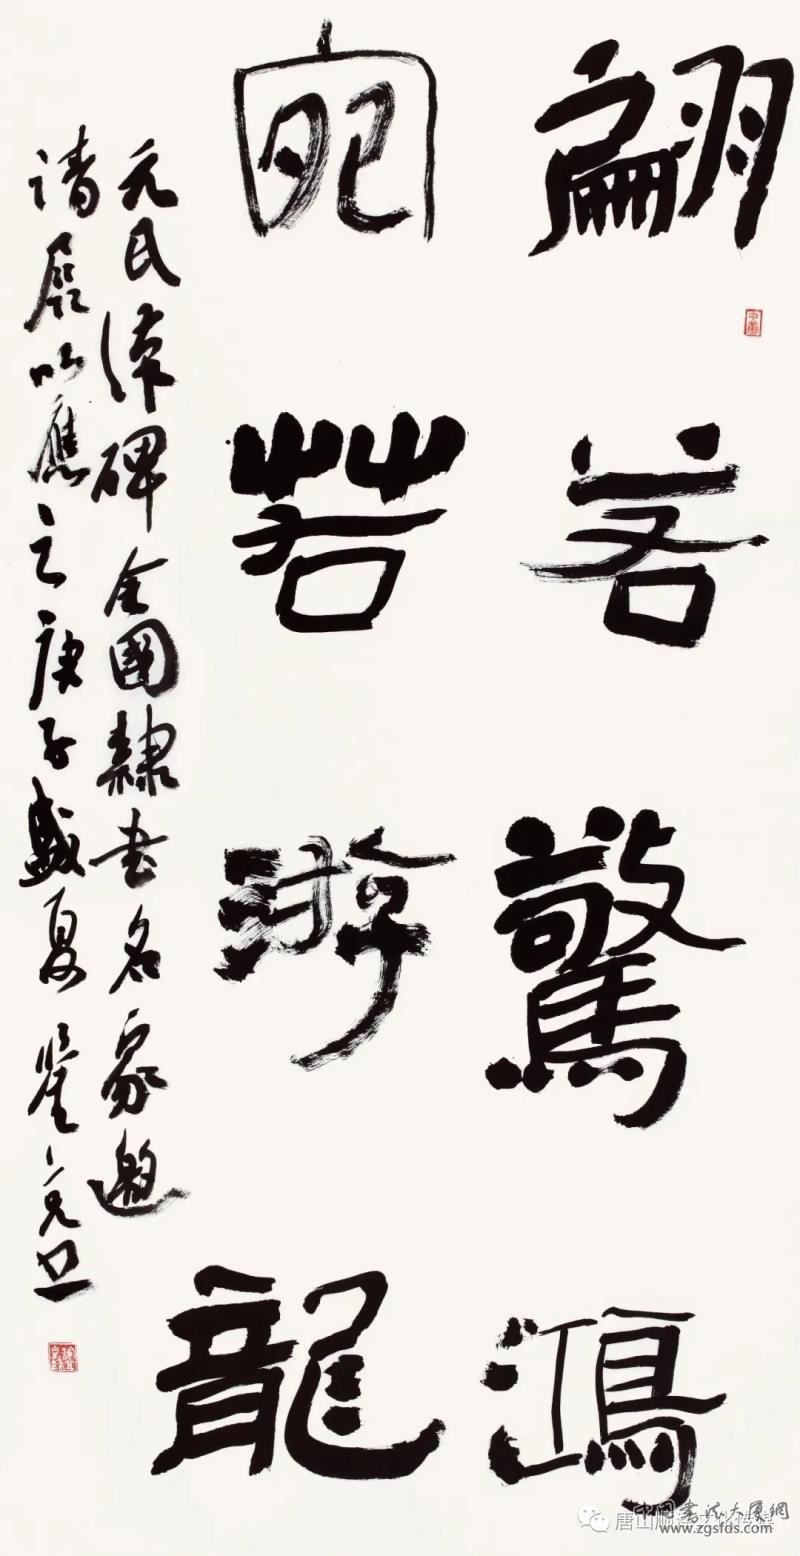 翩若驚鴻
宛若游龍
元氏漢碑全國隸書名家邀
請展以應之庚子盛夏
中國書法大厦網
www.zgsfds.com